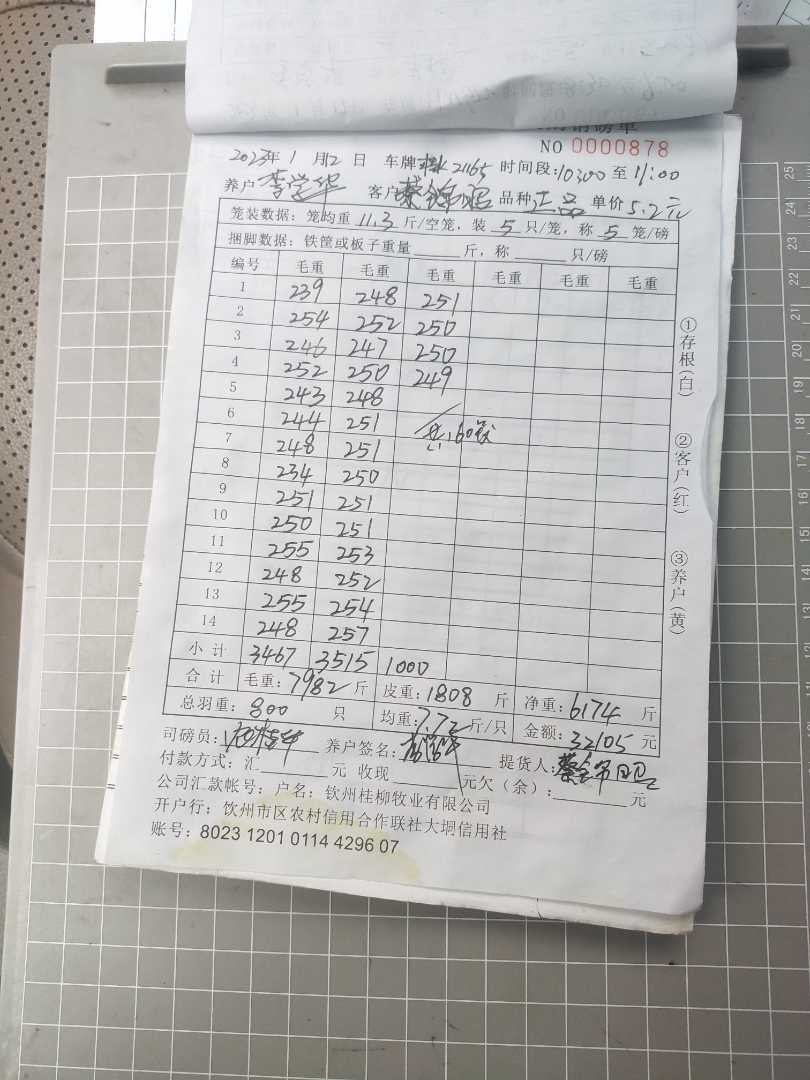 销磅单
NO 0000878
2023年1月12日 车牌 21165 时间段:10:00至11:00
养户 李学华 客户 品种 正品 单价 5.2元
笼装数据：笼均重 11.3 斤/空笼，装 5 只/笼，称 5 笼/磅
捆脚数据：铁筐或板子重量 斤，称 只/磅
编号 毛重 毛重 毛重 毛重 毛重 毛重
1 239 248 251
2 254 252 250
3 246 247 250
4 252 250 249
5 243 248
6 244 251
7 248 251 160
8 234 250
9 251 251
10 250 251
11 255 253
12 248 252
13 255 254
14 248 257
小计 3467 3515 1000
合计 毛重：7982斤 皮重：1808斤 净重：6174斤
总羽重：800只 均重：7.72斤/只 金额：32105元
司磅员： 养户签名： 提货人：
付款方式：汇 元 收现 元欠（余）： 元
公司汇款帐号：户名：钦州桂柳牧业有限公司
开户行：钦州市区农村信用合作联社大垌信用社
账号：8023 1201 0114 4296 07
①存根（白）
②客户（红）
③养户（黄）